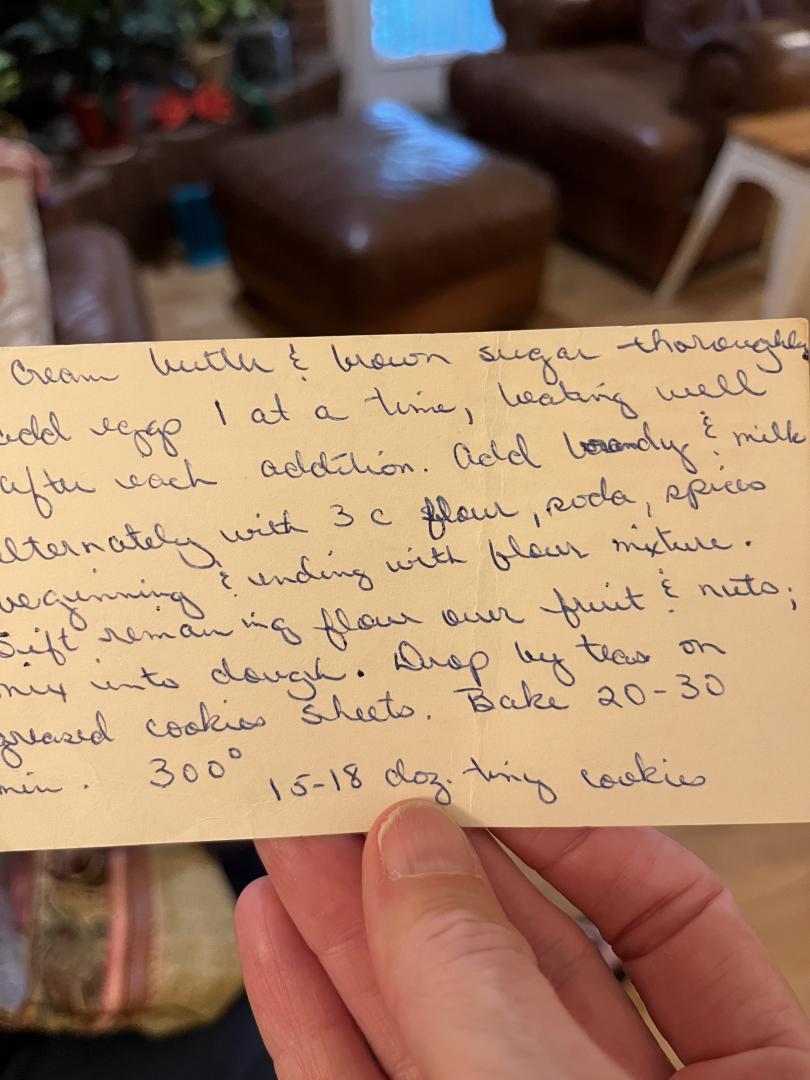 Cream butter & brown sugar thoroughly
add eggs 1 at a time, beating well
after each addition. Add brandy & milk
alternately with 3 c flour, soda, spices
beginning & ending with flour mixture.
Sift remaining flour over fruit & nuts;
mix into dough. Drop by teas on
greased cookies sheets. Bake 20-30
min. 300° 15-18 doz. tiny cookies